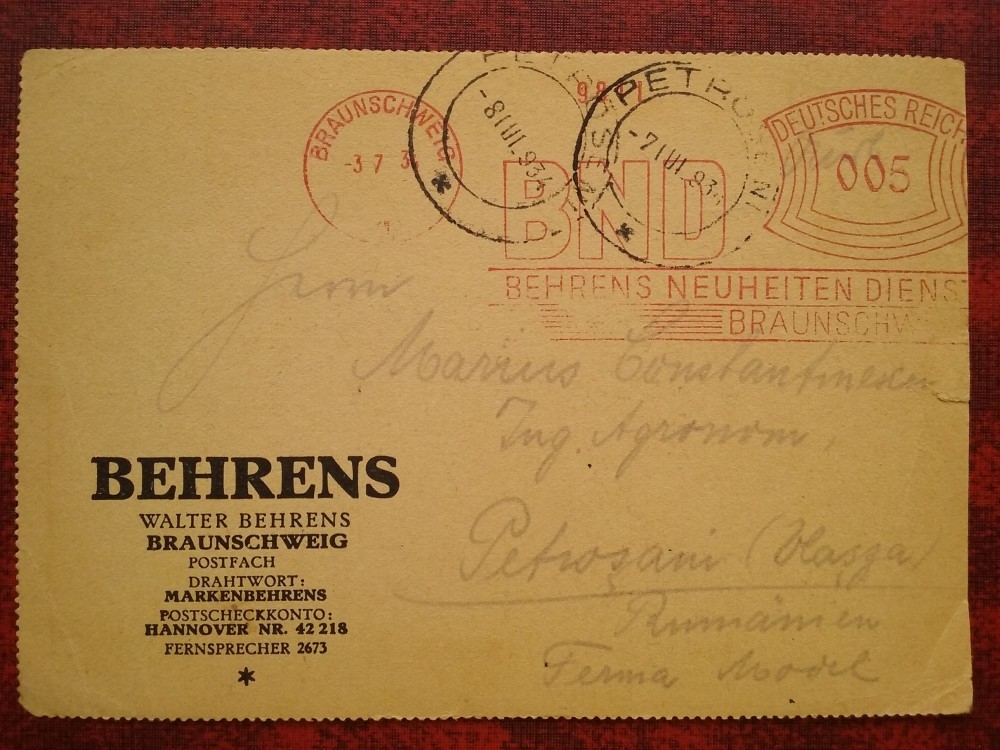 BRAUNSCHWEIG
-3 7 3
-8IUI.934
PETROȘENI
-7IUI.93
BND
BEHRENS NEUHEITEN DIENST
BRAUNSCHW
DEUTSCHES REICH
005
Herrn
Marius Constantinescu
Ing. Agronom,
Petroșani (Vlașca)
Rumänien
Ferma Model
BEHRENS
WALTER BEHRENS
BRAUNSCHWEIG
POSTFACH
DRAHTWORT:
MARKENBEHRENS
POSTSCHECKKONTO:
HANNOVER NR. 42 218
FERNSPRECHER 2673
*